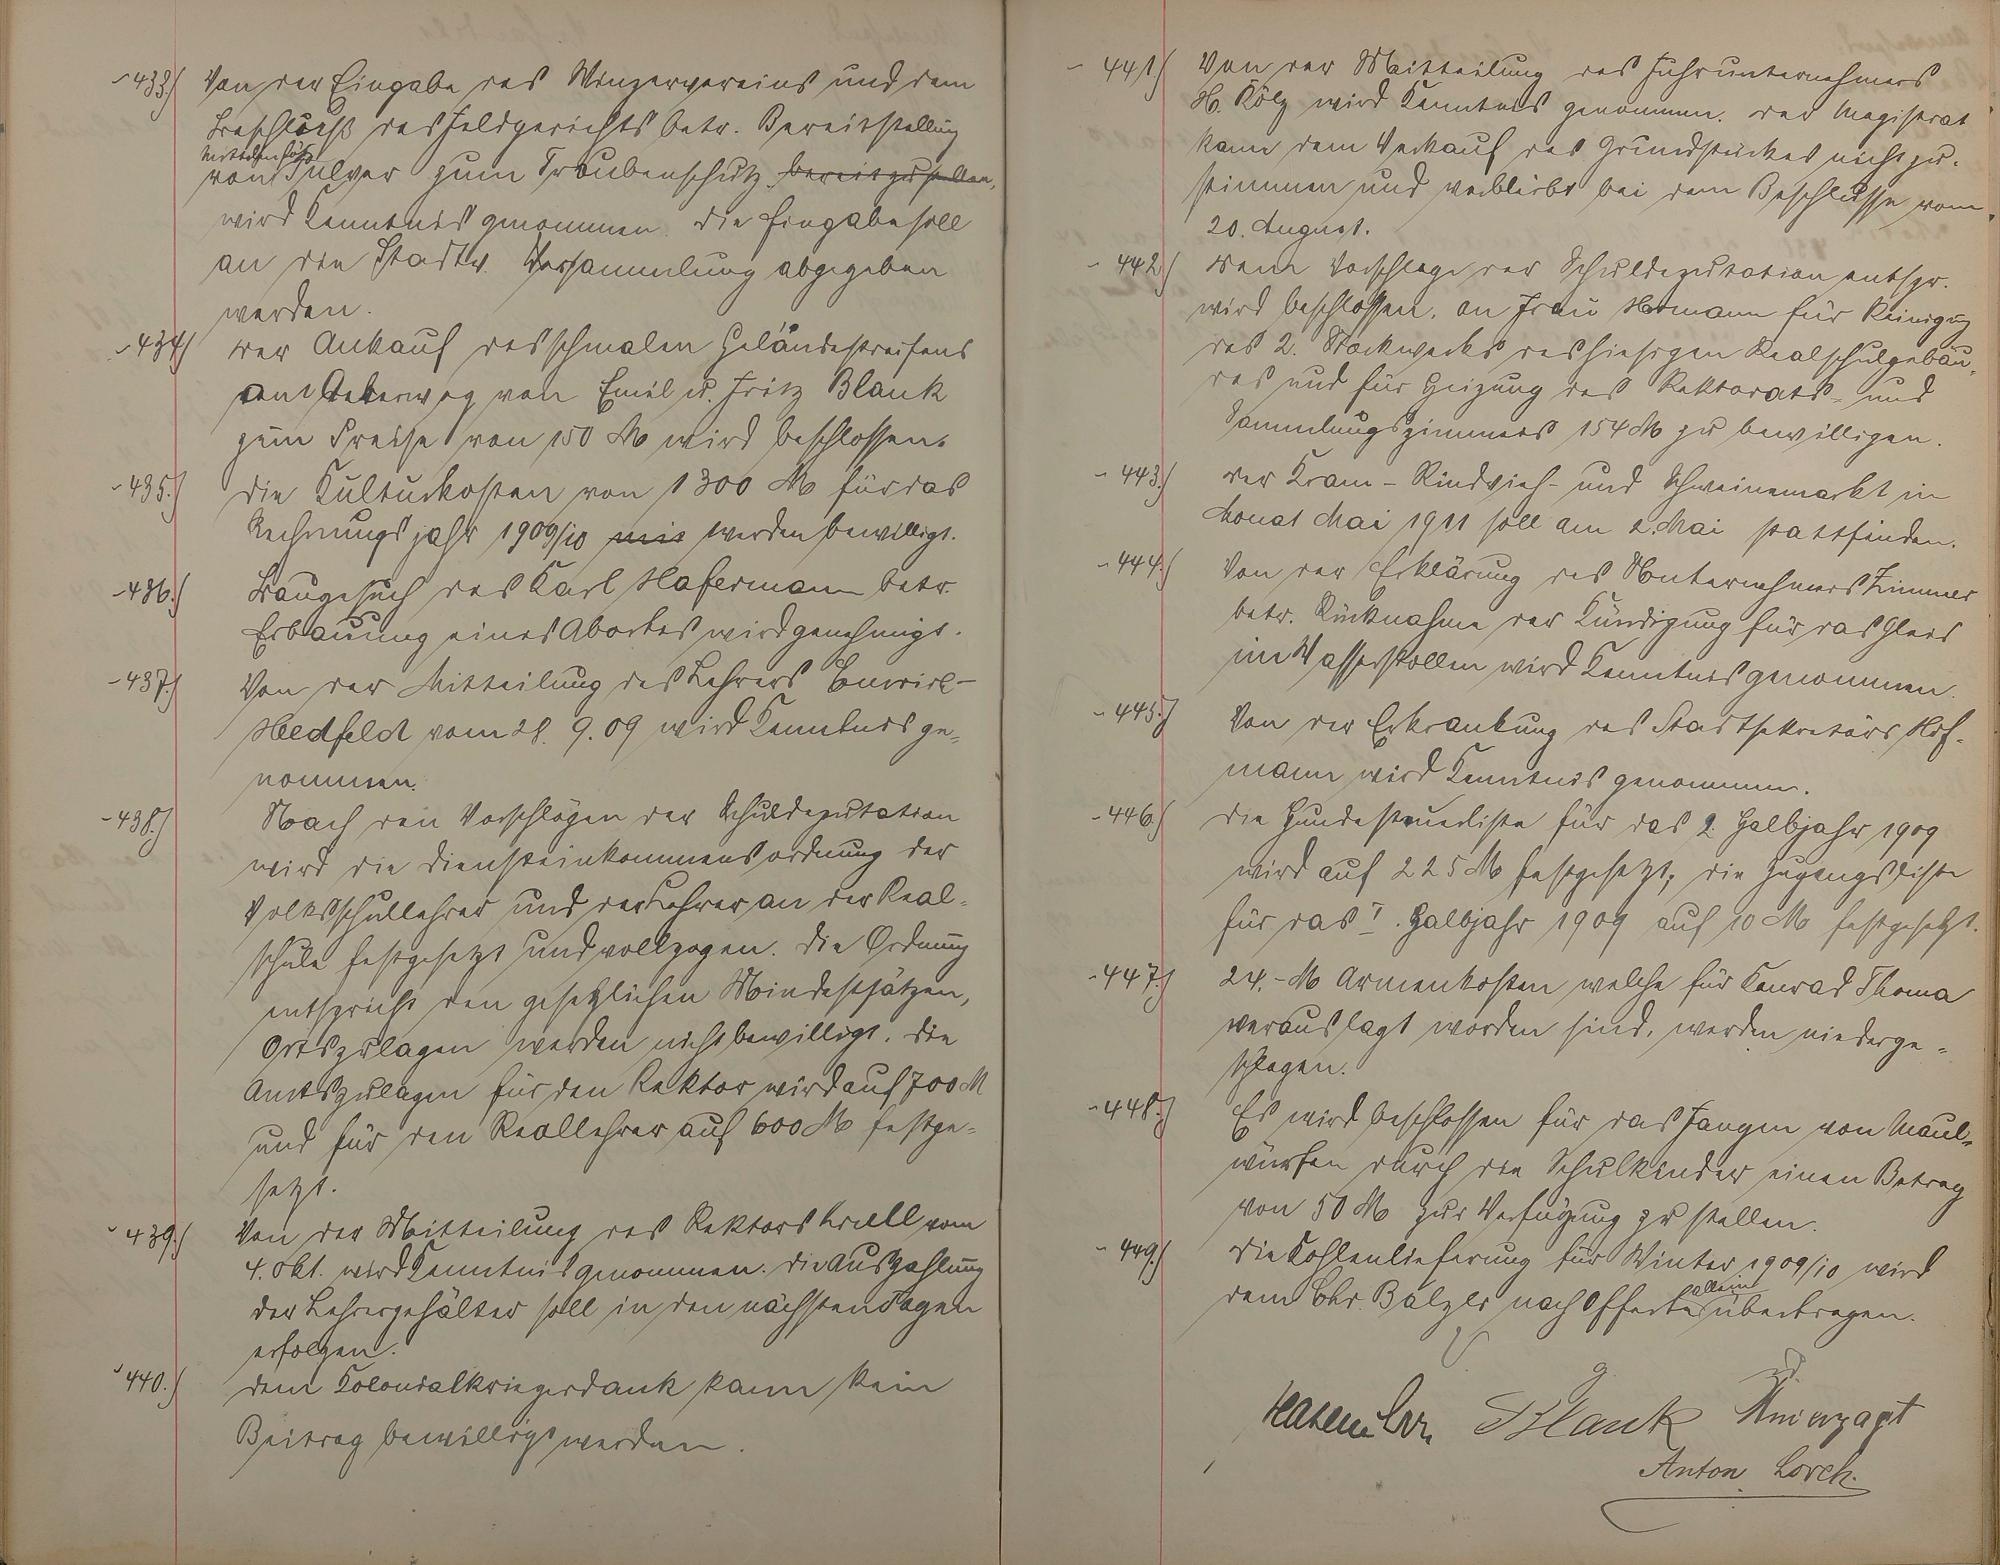 433.) Von der Eingabe des Winzervereins und dem
Beschluß des Feldgerichts betr. Bereitstellung
von Pulver zum Traubenschutz bereitzustellen,
wird Kenntnis genommen. Die Eingabe soll
an die Stadtv. Versammlung abgegeben
werden.
434.) Der Ankauf des schmalen Geländestreifens
am von Emil u. Fritz Blank
zum Preise von 150 M wird beschlossen.
435.) Die Kulturkosten von 1300 M für das
Rechnungsjahr 1909/10 mit werden bewilligt.
436.) Baugesuch des Karl Hafermann betr.
Erbauung eines Abortes wird genehmigt.
437.) Von der Mitteilung des Lehrers
Hedfeld vom 28. 9. 09 wird Kenntnis ge-
nommen.
438.) Nach den Vorschlägen der Schuldeputation
wird die Diensteinkommensordnung der
Volksschullehrer und der Lehrer an der Real-
schule festgesetzt und vollzogen. Die Ordnung
entspricht den gesetzlichen Mindestsätzen,
Ortszulagen werden nicht bewilligt. Die
Amtszulagen für den Rektor wird auf 700 M
und für den Reallehrer auf 600 M festge-
setzt.
439.) Von der Mitteilung des Rektors vom
4. Okt. wird Kenntnis genommen. Die Auszahlung
der Lehrergehälter soll in den nächsten Tagen
erfolgen.
440.) Dem Kolonialkriegerdank kann kein
Beitrag bewilligt werden.
441.) Von der Mitteilung des Fuhrunternehmers
H. Kölz wird Kenntnis genommen. Der Magistrat
kann dem Verkauf des Grundstückes nicht zu-
stimmen und verbleibt bei dem Beschlusse vom
20. August.
442.) Dem Vorschlage der Schuldeputation entspr.
wird beschlossen, an Frau Hofmann für Reinigung
des 2. Stockwerks des hiesigen Realschulgebäu-
des und für Heizung des Rektorats- und
Sammlungszimmers 154 M zu bewilligen.
443.) Der Kram- Rindvieh- und Schweinemarkt im
Monat Mai 1911 soll am 2. Mai stattfinden.
444.) Von der Erklärung des Unternehmers Zimmer
betr. Rücknahme der Kündigung für das Gleis
im Wasserstollen wird Kenntnis genommen.
445.) Von der Erkrankung des Stadtsekretärs Hof-
mann wird Kenntnis genommen.
446.) Die Hundesteuerliste für das 2. Halbjahr 1909
wird auf 225 M festgesetzt, die Zugangsliste
für das I. Halbjahr 1909 auf 10 M festgesetzt.
447.) 24.- M Armenkosten welche für Konrad Thoma
verauslagt worden sind, werden niederge-
schlagen.
448.) Es wird beschlossen für das Fangen von Maul-
würfen durch die Schulkinder einen Betrag
von 50 M zur Verfügung zu stellen.
449.) Die Kohlenlieferung für Winter 1909/10 wird
allein
dem Chr. Balzer nach Offerte übertragen.
Blank
Anton Lorch.